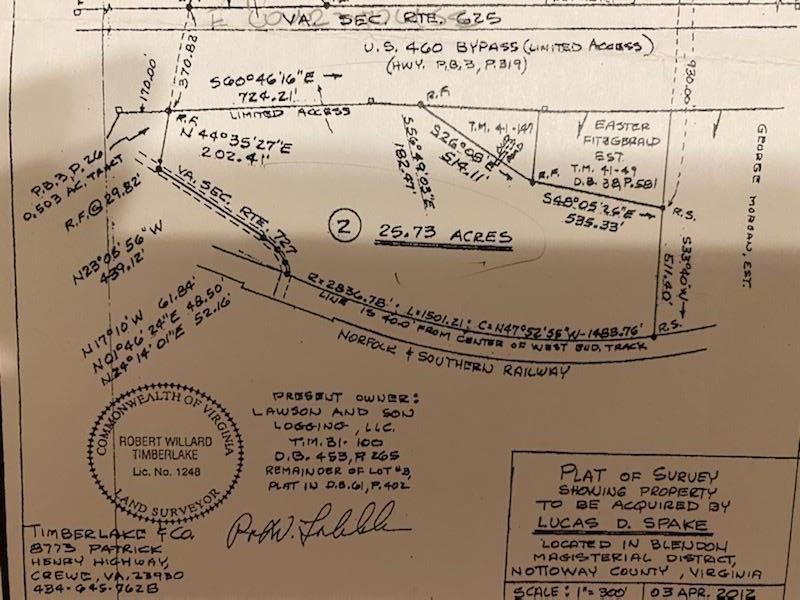 VA. SEC. RTE. 625
U.S. 460 BYPASS (LIMITED ACCESS)
(HWY. P.B.3, P.319)
170.00'
370.82'
930.00'
S60°46'16"E
724.21'
LIMITED ACCESS
R.F.
R.F.
N 44°35'27"E
202.41'
P.B.3, P.26
0.503 AC. TRACT
R.F.@ 29.82'
VA. SEC. RTE. 727
S56°49'03"E
182.47'
S26°08'E
514.11'
T.M. 41-147
EASTER
FITZGERALD
EST.
T.M. 41-49
D.B. 38, P.581
R.F.
S48°05'26"E
535.33'
R.S.
GEORGE MORGAN, EST.
2
25.73 ACRES
S33°40'W
511.40'
R.S.
N23°05'56"W
439.12'
N17°10'W 61.84'
N01°46'24"E 48.50'
N24°14'01"E 52.16'
R=2836.78' L=1501.21' C=N47°52'55"W-1483.76'
LINE IS 40.0' FROM CENTER OF WEST BND. TRACK
NORFOLK & SOUTHERN RAILWAY
COMMONWEALTH OF VIRGINIA
ROBERT WILLARD
TIMBERLAKE
LIC. NO. 1248
LAND SURVEYOR
PRESENT OWNER:
LAWSON AND SON
LOGGING, LLC.
T.M. 31-100
D.B. 453, P. 265
REMAINDER OF LOT #3,
PLAT IN D.B.61, P.402
TIMBERLAKE & CO.
8773 PATRICK
HENRY HIGHWAY,
CREWE, VA. 23930
434-645-7628
PLAT OF SURVEY
SHOWING PROPERTY
TO BE ACQUIRED BY
LUCAS D. SPAKE
LOCATED IN BLENDON
MAGISTERIAL DISTRICT,
NOTTOWAY COUNTY, VIRGINIA
SCALE: 1"=300'
03 APR. 2012